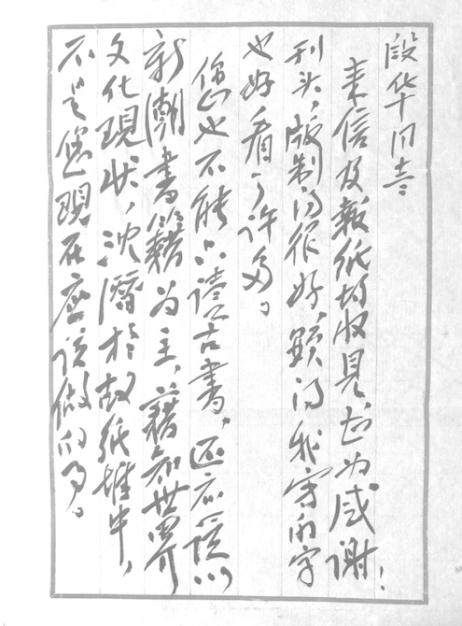 段华同志
来信及報紙均收見,甚为感谢!
刊头,版制得很好,顯得我写的字
也好看了许多。
你也不能只读古書,还应读以
新潮書籍为主,藉知世界
文化現状,沈潛於故紙堆中,
不是您現在应该做的事。